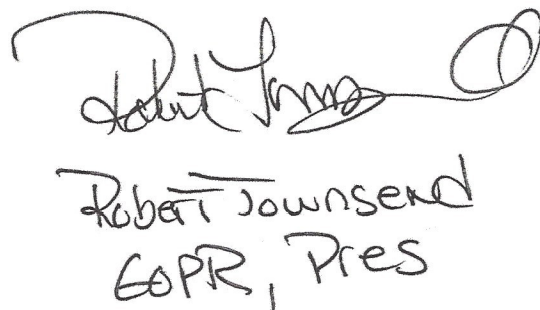 Robert Townsend
Robert Townsend
GOPR, Pres